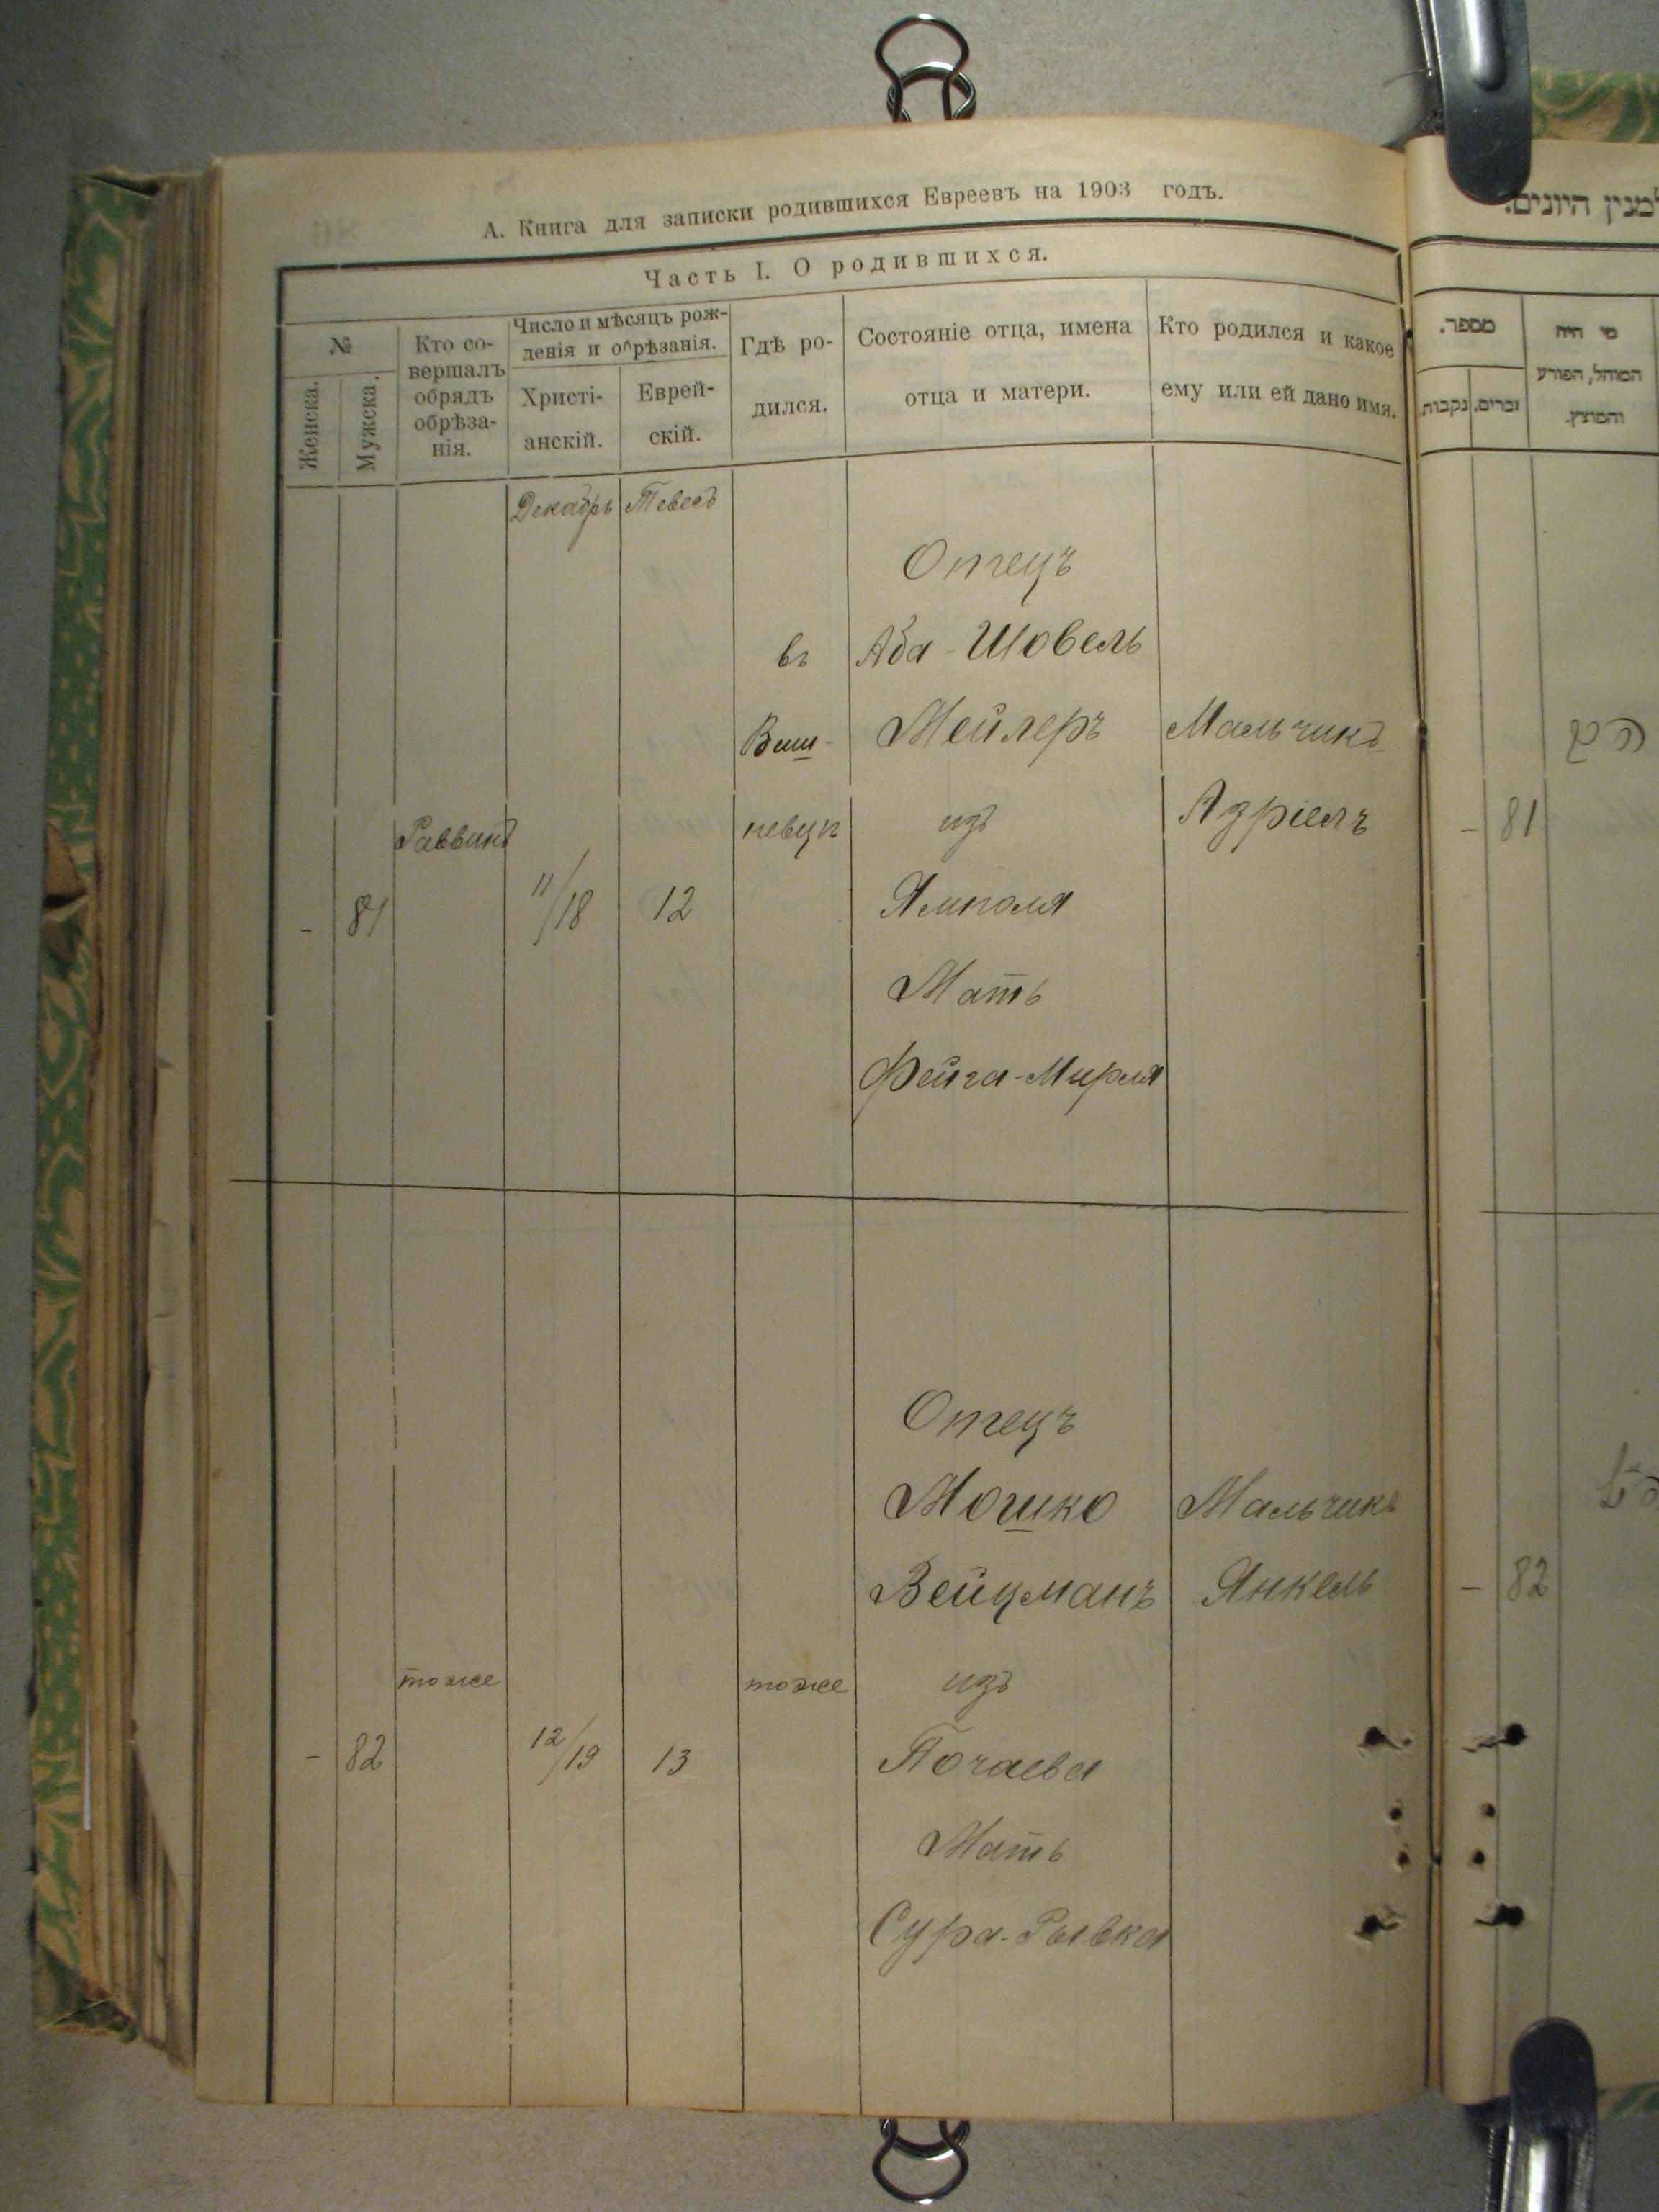 А. Книга для записки родившихся Евреевъ на 1903 годъ.
Часть I. О родившихся.
№
Женска.
Мужска.
Кто со-
вершалъ
обрядъ
обрѣза-
нія.
Число и мѣсяцъ рож-
денія и обрѣзанія.
Христі-
анскій.
Еврей-
скій.
Гдѣ ро-
дился.
Состояніе отца, имена
отца и матери.
Кто родился и какое
ему или ей дано имя.
Декабрь Тевесъ
- 81
Раввинъ
11/18
12
въ
Виш-
невцѣ
Отецъ
Аба-Шовель
Мейлеръ
изъ
Ямполя
Мать
Фейга-Мирля
Мальчикъ
Азріелъ
- 82
тоже
12/19
13
тоже
Отецъ
Мошко
Вейцманъ
изъ
Почаева
Мать
Сура-Рывка
Мальчикъ
Янкель
למנין היונים.
מספר.
נקבות.
זכרים.
מי היה
המוהל, הפורע
והמוצץ.
- 81
- 82